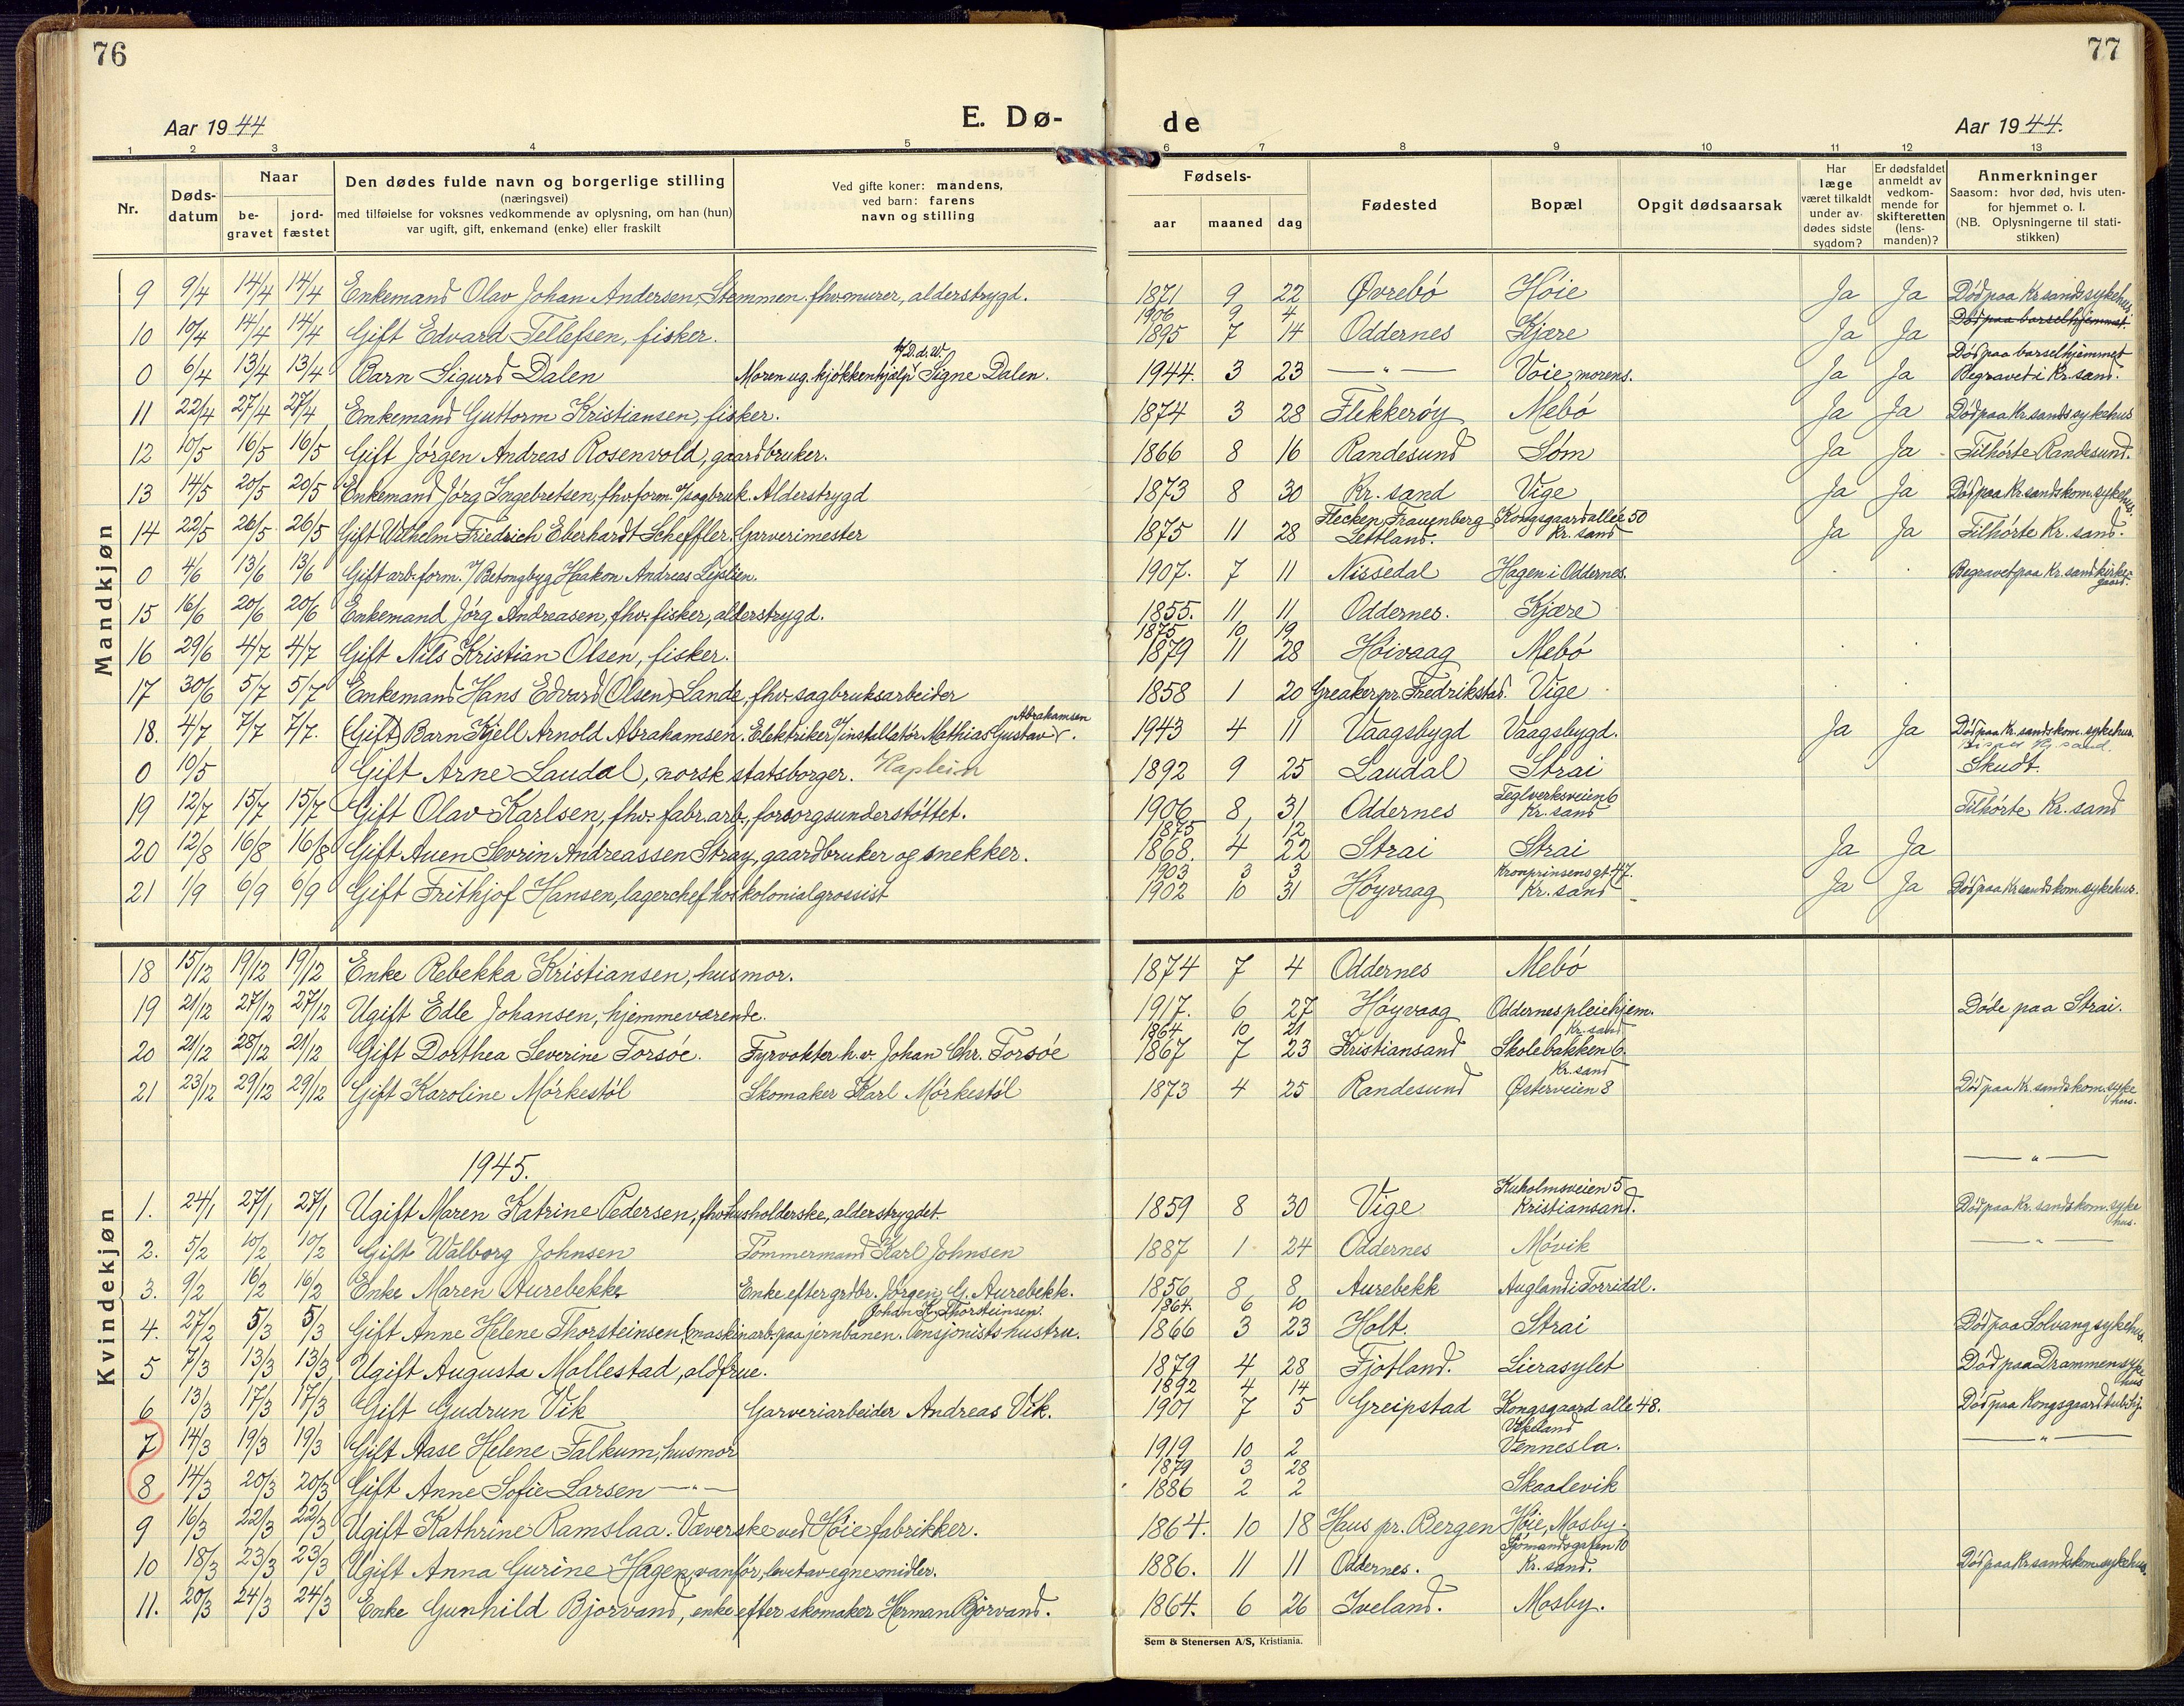 76
77
Aar 1944
E. Dø-
de
Aar 1944.
1 2 3 4 5 6 7 8 9 10 11 12 13
Nr.
Døds-
datum
Naar
be-
gravet
jord-
fæstet
Den dødes fulde navn og borgerlige stilling
(næringsvei)
med tilføielse for voksnes vedkommende av oplysning, om han (hun)
var ugift, gift, enkemand (enke) eller fraskilt
Ved gifte koner: mandens,
ved barn: farens
navn og stilling
Fødsels-
aar maaned dag
Fødested
Bopæl
Opgit dødsaarsak
Har
læge
været tilkaldt
under av-
dødes sidste
sygdom?
Er dødsfaldet
anmeldt av
vedkom-
mende for
skifteretten
(lens-
manden)?
Anmerkninger
Saasom: hvor død, hvis uten-
for hjemmet o. l.
(NB. Oplysningerne til stati-
stikken)
Mandkjøn
9 9/4 14/4 14/4 Enkemand Olav Johan Andersen Stemmen. fhv murer, alderstrygd. 1871 9 22 Øvrebó Høie Ja Ja Død paa Kr.sands sykehus
1906 9 4 Død paa barselhjemmet.
10 10/4 14/4 14/4 Gift Edvard Tellefsen, fisker. 1895 7 14 Oddernes Kjære Ja Ja
0 6/4 13/4 13/4 Barn Sigurd Dalen Moren ug. kjøkkenhjælp v/D.d.W. Signe Dalen. 1944. 3 23 — " — Voie morens. Ja Ja Død paa barselhjemmet Begravet i Kr. sand.
11 22/4 27/4 27/4 Enkemand Guttorm Kristiansen, fisker. 1874 3 28 Flekkerøy Mebó Ja Ja Død paa Kr.sands sykehus
12 10/5 16/5 16/5 Gift Jørgen Andreas Rosenvold, gaardbruker. 1866 8 16 Randesund Søm Ja Ja Tilhørte Randesund.
13 14/5 20/5 20/5 Enkemand Jórg Ingebretsen, fhv form. v/sagbruk. Alderstrygd 1873 8 30 Kr. sand Vige Ja Ja Død paa Kr.sands kom. sykehus.
14 22/5 26/5 26/5 Gift Wilhelm Friedrich Eberhardt Scheffler. Garverimester 1875 11 28 Flecken Frauenberg Lettland. Kongsgaard allée 50 Kr. sand Ja Ja Tilhørte Kr. sand.
0 4/6 13/6 13/6 Gift arb. form. v/Betongbyg Haakon Andreas Lejslien. 1907. 7 11 Nissedal Hagen i Oddernes. Begravet paa Kr. sand kirkegaard.
15 16/6 20/6 20/6 Enkemand Jórg Andreasen, fhv. fisker, alderstrygd. 1855. 11 11 Oddernes. Kjære
1875 10 19
16 29/6 4/7 4/7 Gift Nils Kristian Olsen, fisker. 1879 11 28 Høivaag Mebó
17 30/6 5/7 5/7 Enkemand Hans Edvard (Olsen) Lande, fhv. sagbruksarbeider 1858 1 20 Greaker pr. Fredrikstad. Vige
18. 4/7 7/7 7/7. (Gift) Barn Kjell Arnold Abrahamsen. Elektriker v/installatør Mathias Gustav Abrahamsen. 1943 4 11 Vaagsbygd Vaagsbygd. Ja Ja Død paa Kr. sands kom. sykehus.
0 10/5 Gift Arne Laudal, norsk statsborger. Kaptein 1892 9 25 Laudal Strai Skudt.
19 12/7 15/7 15/7 Gift Olav Karlsen, fhv. fabr. arb., forsorgsunderstøttet. 1906 8 31 Oddernes Teglverksveien 6 Kr. sand Tilhørte Kr. sand
1875 1 12
20 12/8 16/8 16/8 Gift Auen Sevrin Andreassen Stray, gaardbruker og snekker. 1868. 4 22 Strai Strai Ja Ja
1903 3 3
21 1/9 6/9 6/9 Gift Frithjof Hansen, lagerchef hos kolonialgrossist 1902 10 31 Høyvaag Kronprinsensgt. 47. Kr. sand Ja Ja Død paa Kr.sands kom. sykehus.
Kvindekjøn
18 15/12 19/12 19/12 Enke Rebekka Kristiansen, husmor. 1874 7 4 Oddernes Mebó
19 21/12 27/12 27/12 Ugift Edle Johansen, hjemmeværende. 1917. 6 27 Høyvaag Oddernes pleiehjem. Døde paa Strai.
1864 10 21
20 21/12 28/12 21/12 Gift Dorthea Severine Torsóe. Fyrvokter h.v. Johan Chr. Torsóe 1867 7 23 Kristiansand Kr. sand Skolebakken 6.
21 23/12 29/12 29/12 Gift Karoline Mórkestól Skomaker Karl Mórkestól 1873 4 25 Randesund Kr. sand Østerveien 8 Død paa Kr. sands kom. sykehus.
1945.
— " —
1. 24/1 27/1 27/1 Ugift Maren Katrine Pedersen, fhv husholderske, alderstrygdet. 1859 8 30 Vige Kuholmsveien 5 Kristiansand. Død paa Kr. sands kom. sykehus.
2. 5/2 10/2 10/2 Gift Walborg Johnsen Tømmermand Karl Johnsen 1887 1 24 Oddernes Móvik — " —
3. 9/2 16/2 16/2 Enke Maren Aurebekk Enke efter grdbr. Jørgen G. Aurebekk. 1856 8 8 Aurebekk Augland i Torridal.
1864. 6 10
4. 27/2 5/3 5/3 Gift Anne Helene Thorsteinsen (maskinarb. paa jernbanen. Johan K. Thorsteinsen. Pensjonists hustru. 1866 3 23 Holt. Strai Død paa Solvang sykehus
5 7/3 13/3 13/3 Ugift Augusta Mollestad, oldfrue. 1879 4 28 Fjotland. Lierasylet Død paa Drammen sykehus
1892 4 14
6 13/3 17/3 17/3 Gift Gudrun Vik Garveriarbeider Andreas Vik. 1901 7 5 Greipstad Kongsgaard alle 48. Død paa Kongsgaard tub.hj.
7 14/3 19/3 19/3 Gift Aase Helene Falkum, husmor 1919 10 2 Vikeland Vennesla. — " —
1879 3 28
8 14/3 20/3 20/3 Gift Anne Sofie Larsen — " — 1886 2 2 Skaalevik
9 16/3 22/3 22/3 Ugift Kathrine Ramslaa. Væverske ved Høie fabrikker. 1864. 10 18 Haus pr. Bergen Høie, Mosby.
10 18/3 23/3 23/3 Ugift Anna Gurine Hagen, vanfør, levet av egne midler. 1886. 11 11 Oddernes. Sjómandsgaten 10 Kr. sand. Død paa Kr.sands kom. sykehus.
11. 20/3 24/3 24/3 Enke Gunhild Bjorvand, enke efter skomaker Herman Bjørvand. 1864. 6 26 Iveland. Mosby.
Sem & Stenersen A/S, Kristiania.